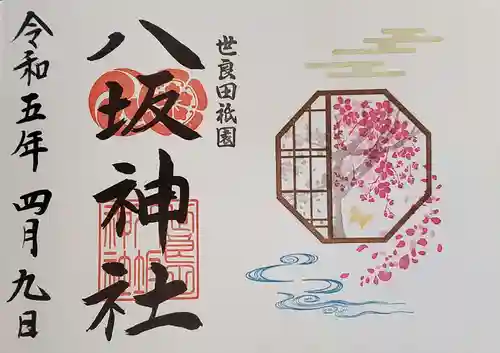 世良田祇園
八坂神社
令和五年 四月九日